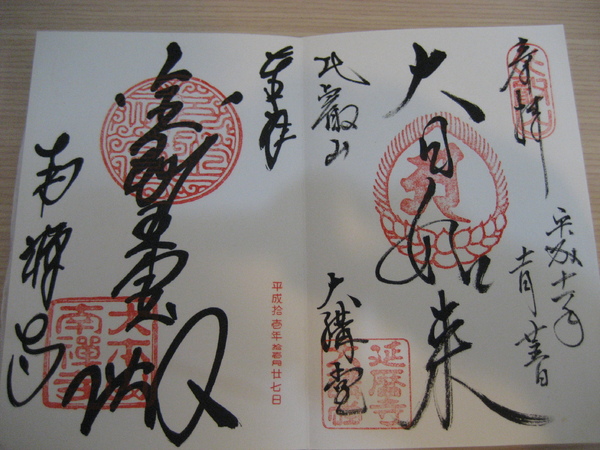 奉拝
平成十一年
大日如来
比叡山
大講堂
延暦寺
奉拝
平成拾壱年拾壱月廿七日
金剛王宝殿
南禅寺
大本山
南禅寺